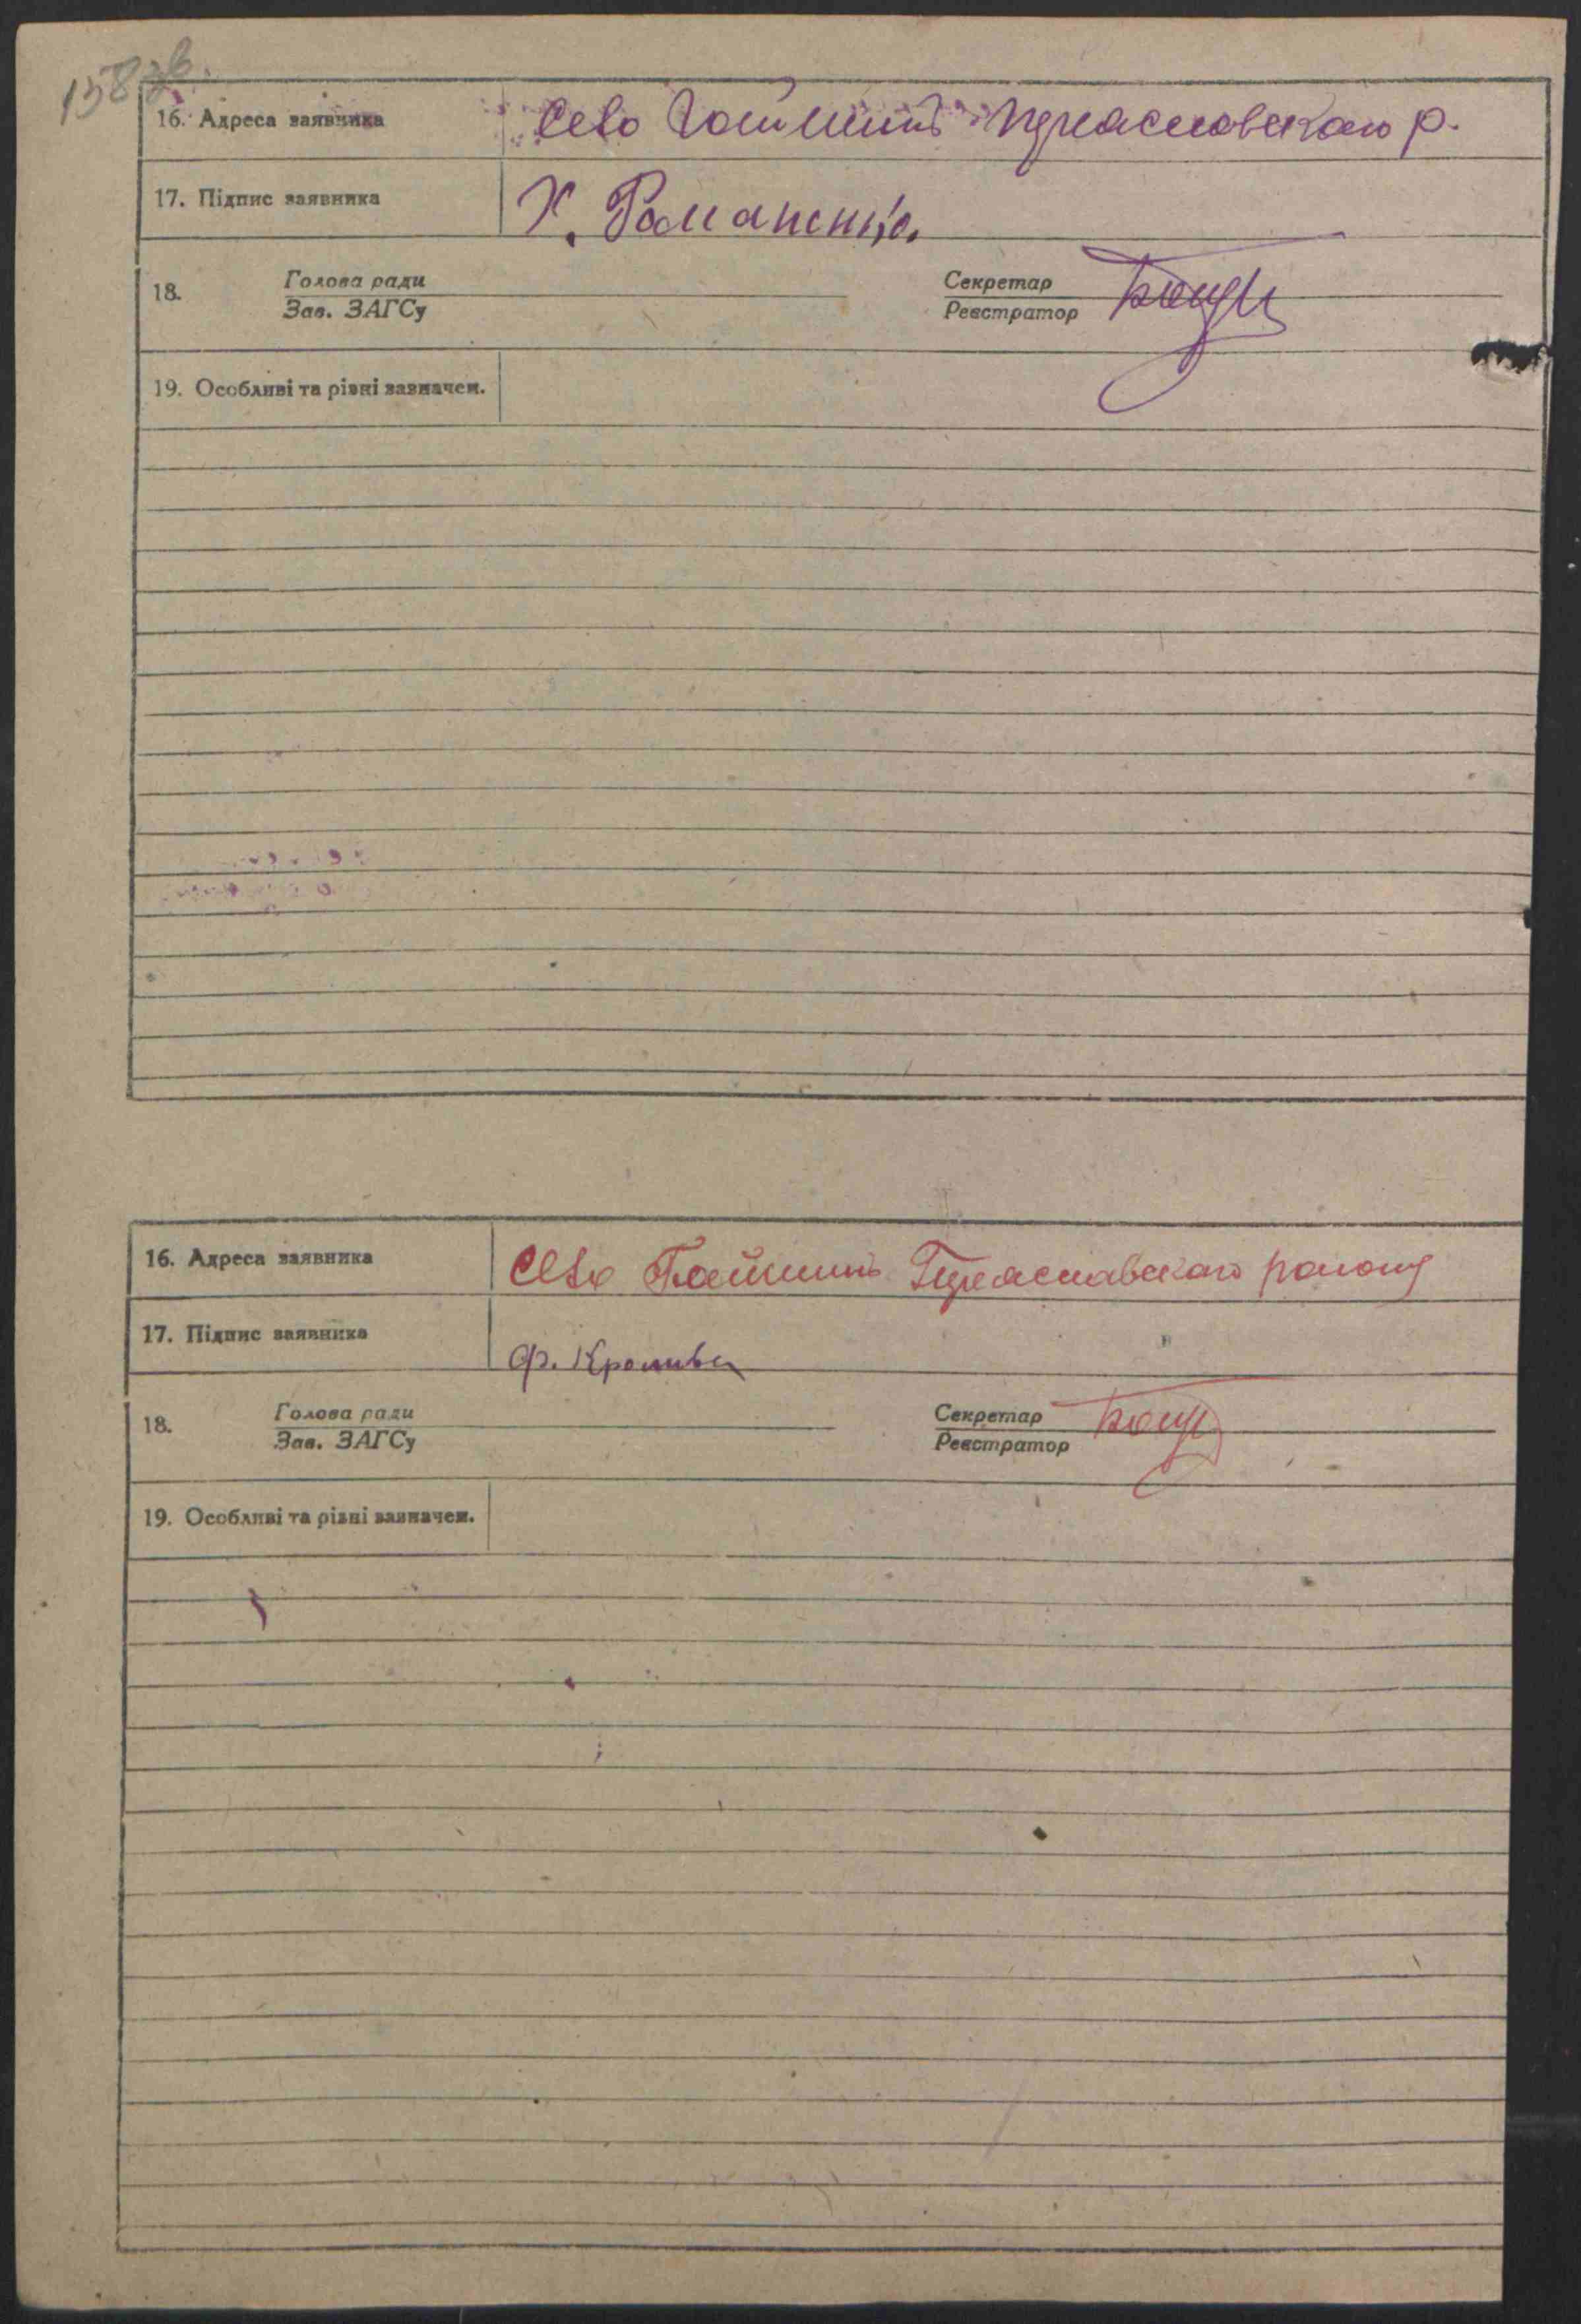 158 зв.
16. Адреса заявника Село Гайшинъ Переяславского р.
17. Підпис заявника Х. Романенко.
18. Голова ради Секретар
Зав. ЗАГСу Реєстратор
19. Особливі та різні зазначен.
16. Адреса заявника Село Гайшинъ Переяславского району
17. Підпис заявника Ф. Кропива
18. Голова ради Секретар
Зав. ЗАГСу Реєстратор
19. Особливі та різні зазначен.